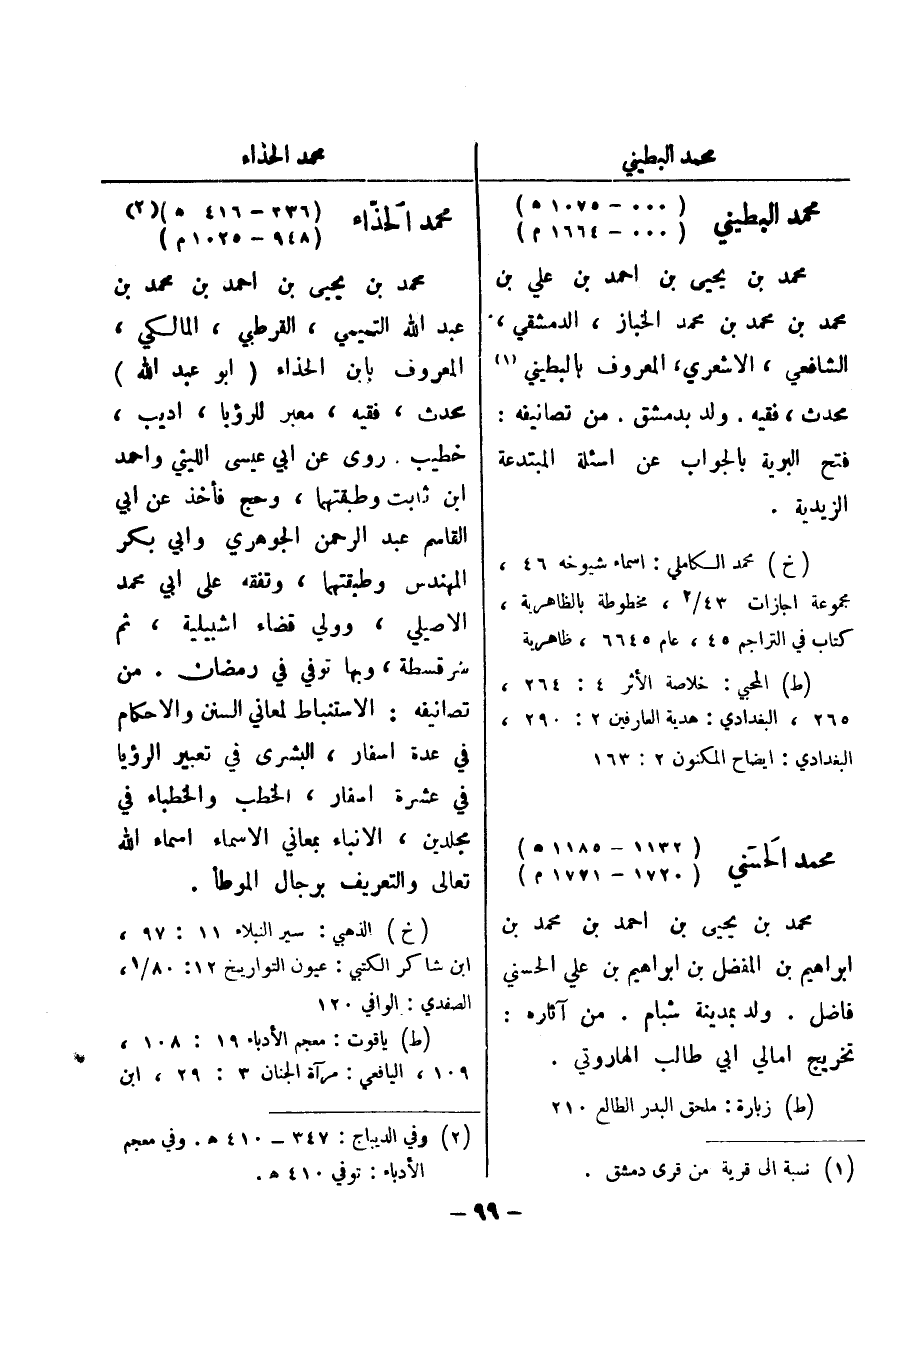 محمد البطيني
محمد البطيني
( ٠٠٠ – ١٠٧٥ ه )
( ٠٠٠ – ١٦٦٤ م )
محمد بن يحيى بن احمد بن علي بن
محمد بن محمد بن محمد الخباز ، الدمشقي ،
الشافعي ، الاشعري، المعروف بالبطيني (١)
محدث ، فقيه . ولد بدمشق . من تصانيفه :
فتح البرية بالجواب عن اسئلة المبتدعة
الزيدية .
( خ ) محمد الكاملي : اسماء شيوخه ٤٦ ،
مجموعة اجازات ٤٣/٢ ، مخطوطة بالظاهرية ،
كتاب في التراجم ٤٥ ، عام ٦٦٤٥ ، ظاهرية
(ط) المحبي : خلاصة الأثر ٤ : ٢٦٤ ،
٢٦٥ ، البغدادي : هدية العارفين ٢ : ٢٩٠ ،
البغدادي : ايضاح المكنون ٢ : ١٦٣
محمد الحَسَني
( ١١٣٢ – ١١٨٥ ه )
( ١٧٢٠ – ١٧٧١ م )
محمد بن يحيى بن احمد بن محمد بن
ابراهيم بن المفضل بن ابراهيم بن علي الحسني
فاضل . ولد بمدينة شبام . من آثاره :
تخريج امالي ابي طالب الهاروتي .
(ط) زبارة : ملحق البدر الطالع ٢١٠
(١) نسبة الى قرية من قرى دمشق .
محمد الحذاء
محمد الحَذّاء
(٣٣٦ – ٤١٦ ه )(٢)
(٩٤٨ – ١٠٢٥ م )
محمد بن يحيى بن احمد بن محمد بن
عبد الله التميمي ، القرطبي ، المالكي ،
المعروف بابن الحذاء ( ابو عبد الله )
محدث ، فقيه ، معبر للرؤيا ، اديب ،
خطيب . روى عن ابي عيسى الليثي واحمد
ابن ثابت وطبقتهما ، وحج فأخذ عن ابي
القاسم عبد الرحمن الجوهري وابي بكر
المهندس وطبقتهما ، وتفقه على ابي محمد
الاصيلي ، وولي قضاء اشبيلية ، ثم
سرقسطة ، وبها توفي في رمضان . من
تصانيفه : الاستنباط لمعاني السنن والاحكام
في عدة اسفار ، البشرى في تعبير الرؤيا
في عشرة اسفار ، الخطب والخطباء في
مجلدين ، الانباء بمعاني الاسماء اسماء الله
تعالى والتعريف برجال الموطأ .
( خ ) الذهبي : سير النبلاء ١١ : ٩٧ ،
ابن شاكر الكتبي : عيون التواريخ ١٢: ٨٠/١،
الصفدي : الوافي ١٢٠
(ط) ياقوت : معجم الأدباء ١٩ : ١٠٨ ،
١٠٩ ، اليافعي : مرآة الجنان ٣ : ٢٩ ، ابن
(٢) وفي الديباج : ٣٤٧ – ٤١٠ ه . وفي معجم
الأدباء : توفي ٤١٠ ه .
– ٩٩ –